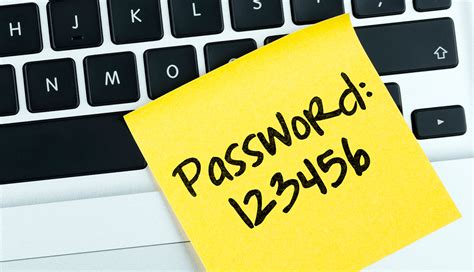 H J K L
N M O P
Password:
123456